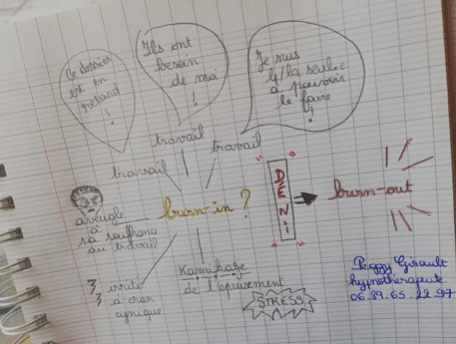 Ce dossier
est en
retard
!
Ils ont
besoin
de moi
!
Je suis
le/la seul.e
à pouvoir
le faire
!
travail
travail
travail
burn-in ?
DENI
burn-out
aveugle
à
sa souffrance
au travail
irrité
à cran
cynique
Kamikaze
de l'épuisement
STRESS
Peggy Girault
hypnothérapeute
06.89.65.22.97